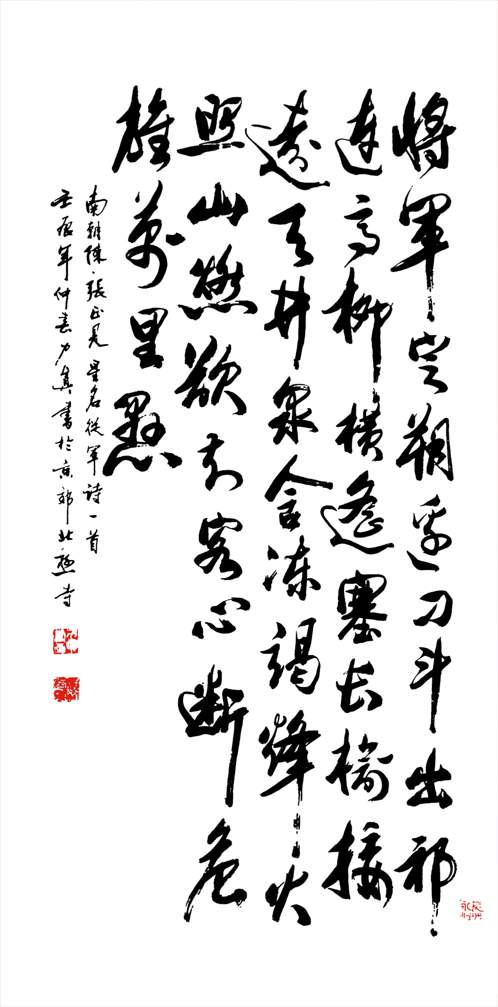 將軍定朔邊刁斗出祁
連高柳橫遙塞長榆接
遠天井泉含凍竭烽火
照山燃欲知客心斷危
旌萬里懸
南朝陳·張正見星名從軍詩一首
年仲春力真書於京郊北極寺